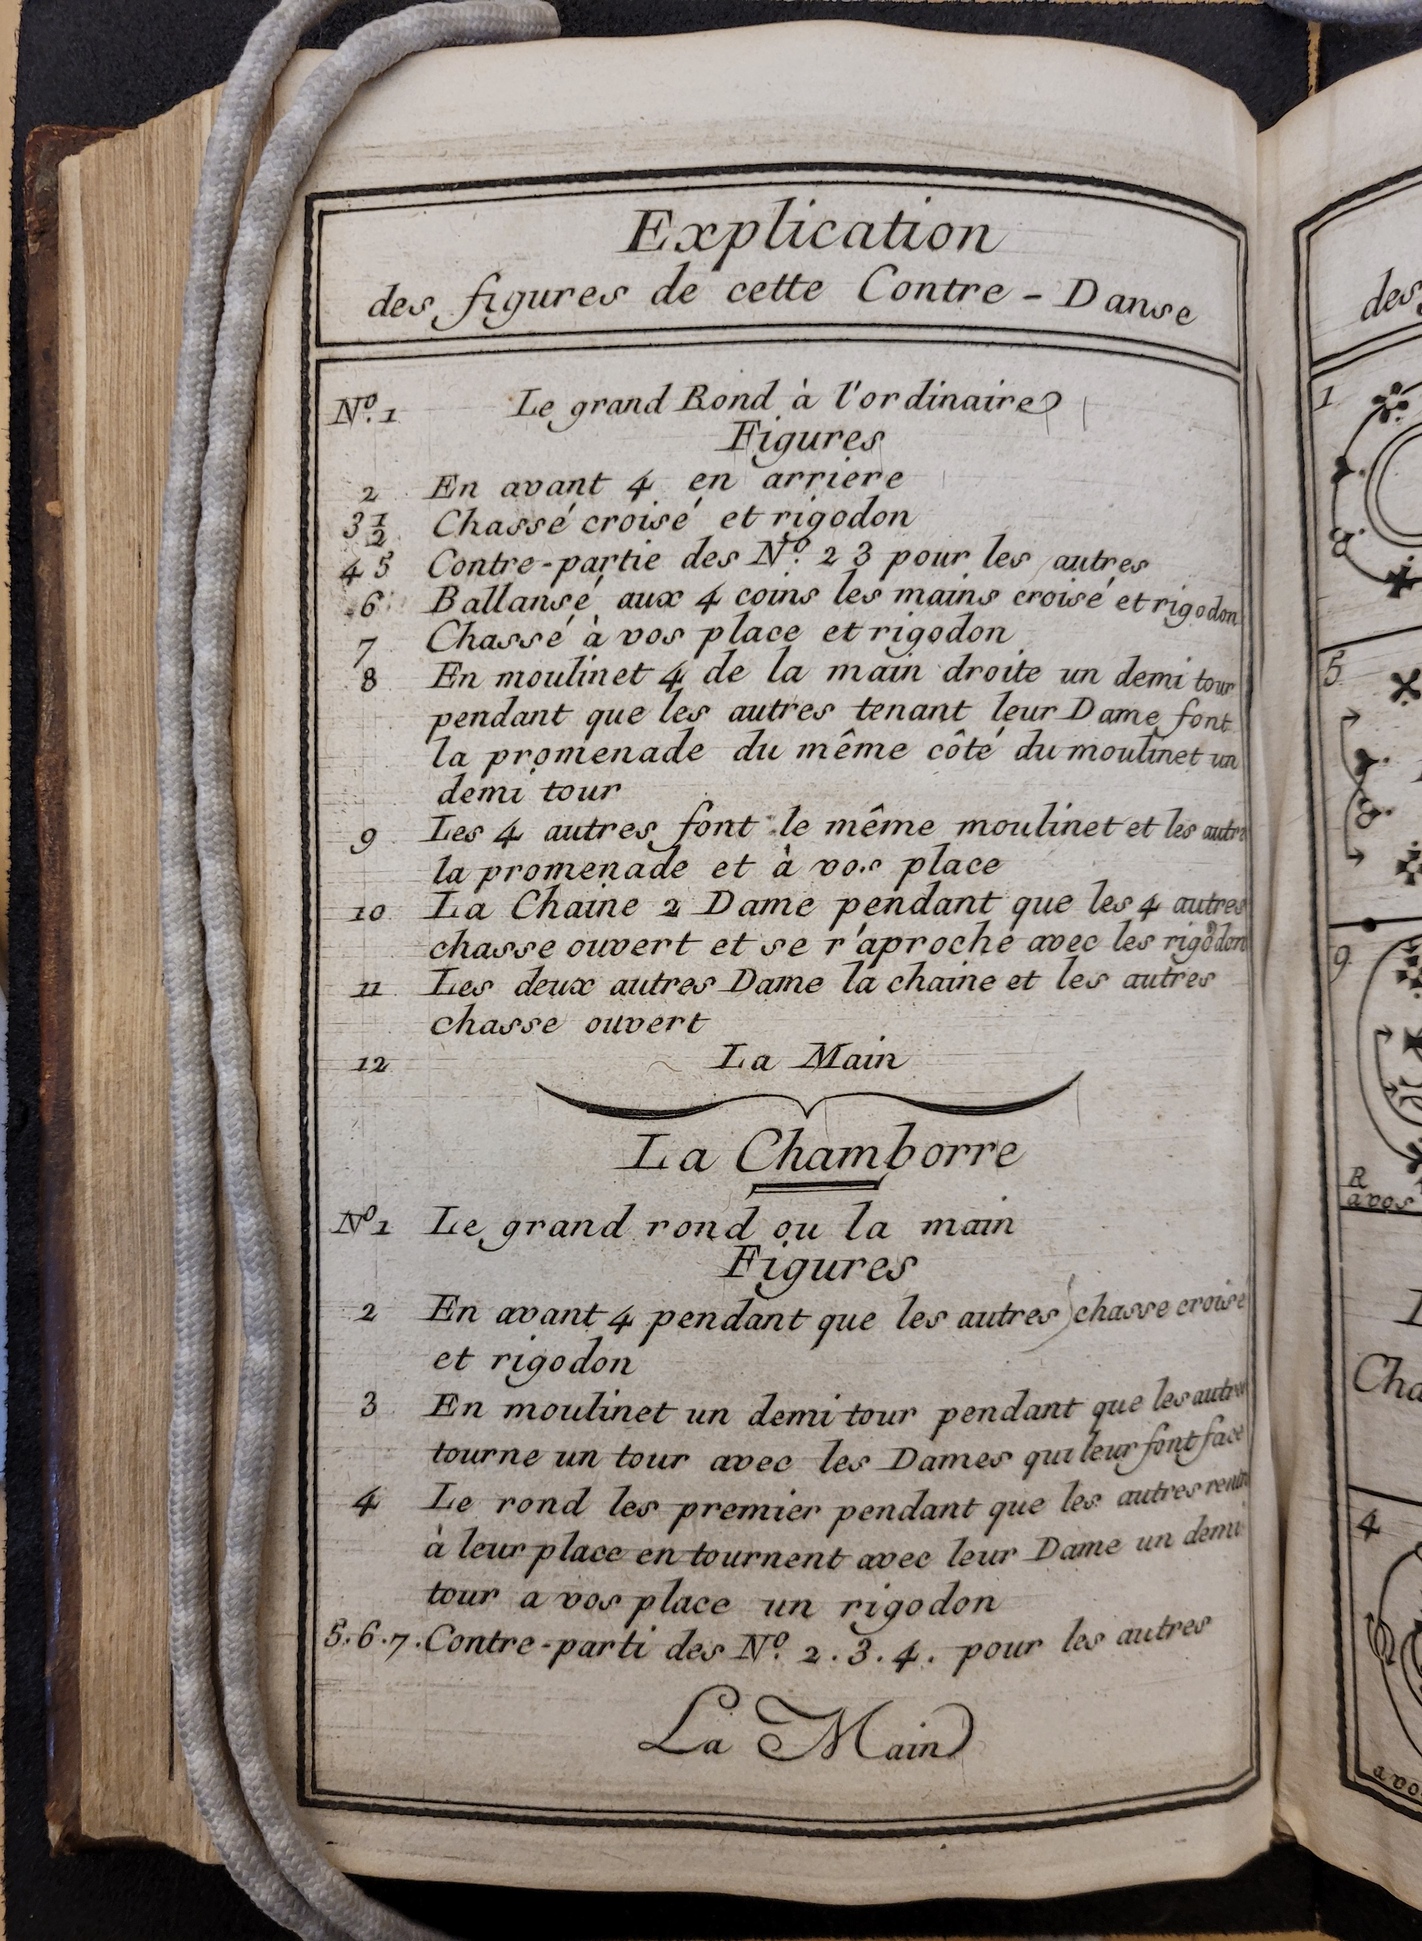 Explication
des figures de cette Contre-Danse
N.º 1 Le grand Rond à l'ordinaire
Figures
2 En avant 4 en arriere
3 1/2 Chassé croisé et rigodon
4 5 Contre-partie des N.º 2 3 pour les autres
6 Ballansé aux 4 coins les mains croisé et rigodon
7 Chassé à vos place et rigodon
8 En moulinet 4 de la main droite un demi tour
pendant que les autres tenant leur Dame font
la promenade du même côté du moulinet un
demi tour
9 Les 4 autres font le même moulinet et les autre
la promenade et à vos place
10 La Chaine 2 Dame pendant que les 4 autres
chasse ouvert et se r'aproché avec les rigodon
11 Les deux autres Dame la chaine et les autres
chasse ouvert
12 La Main
La Chamborre
Nº 1 Le grand rond ou la main
Figures
2 En avant 4 pendant que les autres chasse croisé
et rigodon
3 En moulinet un demi tour pendant que les autres
tourne un tour avec les Dames qui leur font face
4 Le rond les premier pendant que les autres
à leur place en tournent avec leur Dame un demi
tour a vos place un rigodon
5.6.7. Contre-parti des N.º 2.3.4. pour les autres
La Main
des
1
5
9
R
a vos
Cha
4
a vo